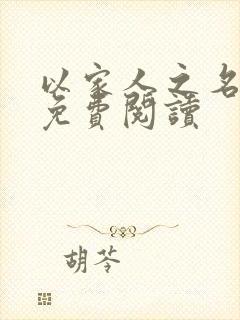 以家人之名
免費閱讀
胡苓